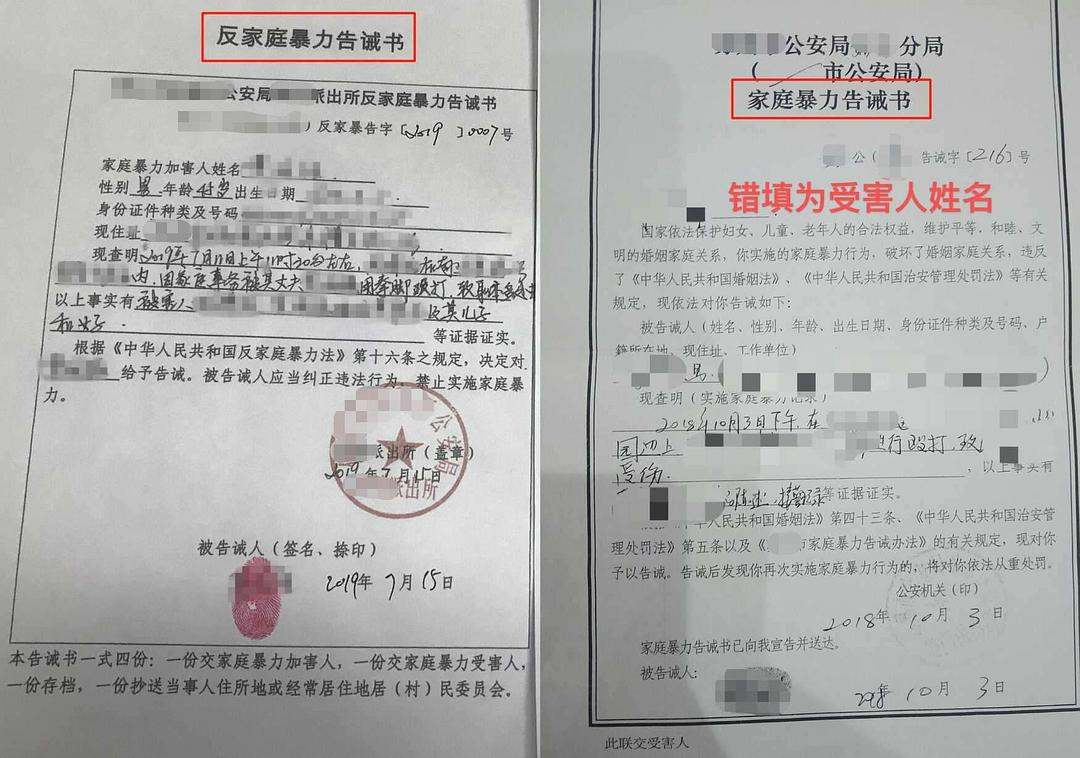 反家庭暴力告诫书
公安局 派出所反家庭暴力告诫书
）反家暴告字〔2019〕0007号
家庭暴力加害人姓名
性别男 年龄 岁出生日期
身份证件种类及号码
现住址
现查明2019年7月11日上午11时30分左右,
内,因家庭事务被其丈夫 用拳脚殴打,致
以上事实有被害人 及其儿子
和女子 等证据证实。
根据《中华人民共和国反家庭暴力法》第十六条之规定，决定对
给予告诫。被告诫人应当纠正违法行为，禁止实施家庭暴
力。
公安局
派出所（盖章）
2019年7月15日
派出所
被告诫人（签名、捺印）
2019年7月15日
本告诫书一式四份：一份交家庭暴力加害人，一份交家庭暴力受害人，
一份存档，一份抄送当事人住所地或经常居住地居（村）民委员会。
公安局 分局
（ 市公安局）
家庭暴力告诫书
公（ 告诫字〔216〕号
错填为受害人姓名
国家依法保护妇女、儿童、老年人的合法权益，维护平等、和睦、文
明的婚姻家庭关系，你实施的家庭暴力行为，破坏了婚姻家庭关系，违反
了《中华人民共和国婚姻法》、《中华人民共和国治安管理处罚法》等有关
规定，现依法对你告诫如下：
被告诫人（姓名、性别、年龄、出生日期、身份证件种类及号码、户
籍所在地、现住址、工作单位）
男.
现查明（实施家庭暴力记录）
2018年10月3日下午,在
园边上 进行殴打,致
受伤. ，以上事实有
陈述、 等证据证实。
根据《中华人民共和国婚姻法》第四十三条、《中华人民共和国治安管
理处罚法》第五条以及《 市家庭暴力告诫办法》的有关规定，现对你
予以告诫。告诫后发现你再次实施家庭暴力行为的，将对你依法从重处罚。
公安机关（印）
2018年10月3日
家庭暴力告诫书已向我宣告并送达。
被告诫人：
年10月3日
此联交受害人